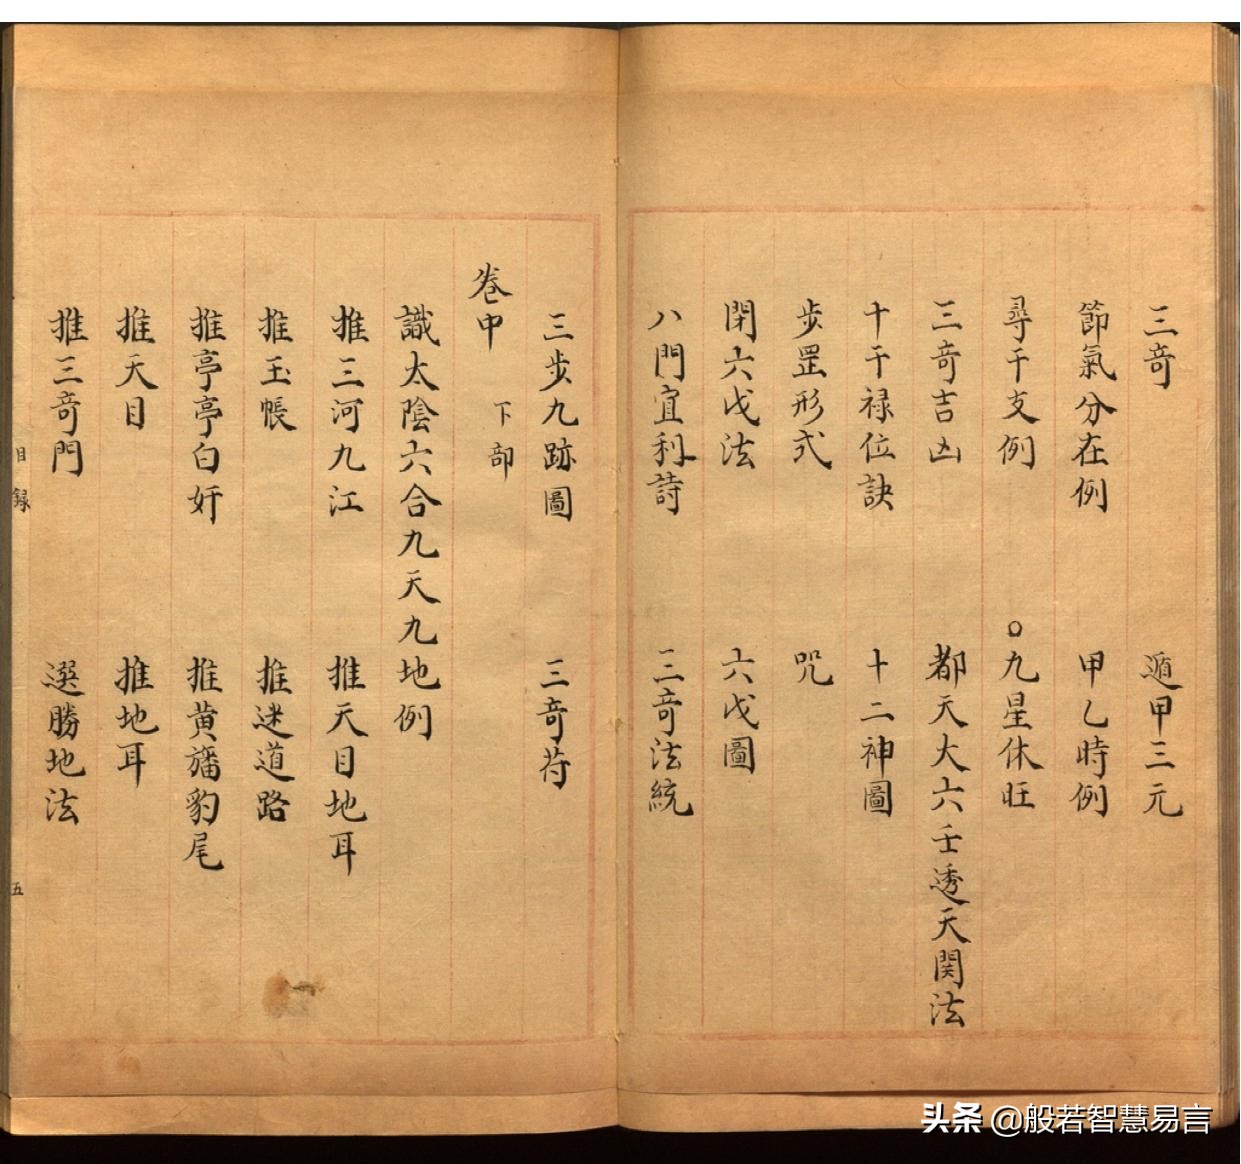 三奇 遁甲三元
節氣分在例 甲乙時例
尋干支例 ○九星休旺
三奇吉凶 都天大六壬透天関法
十干禄位訣 十二神圖
步罡形式 咒
閉六戊法 六戊圖
八門宜利詩 三奇法統
三步九跡圖 三奇符
卷中 下部
識太陰六合九天九地例
推三河九江 推天目地耳
推玉帳 推迷道路
推亭亭白奸 推黄旛豹尾
推天目 推地耳
推三奇門 選勝地法
目録
五
头条 @般若智慧易言